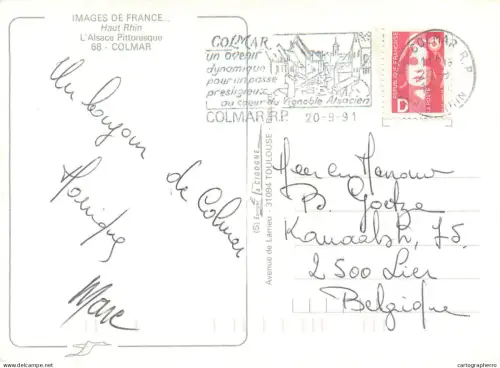 IMAGES DE FRANCE...
Haut Rhin
L'Alsace Pittoresque
68 - COLMAR
Un bonjour
de Colmar
Monique
Marc
COLMAR
un avenir
dynamique
pour un passé
prestigieux
au coeur du Vignoble Alsacien
COLMAR R.P. 20-9-91
COLMAR R.P.
D
Avenue de Larrieu - 31094 TOULOUSE
Heer en Mevrouw
B. Goetze
Kanaalstr. 75.
2500 Lier
Belgique
delcampe.net
cartographerro